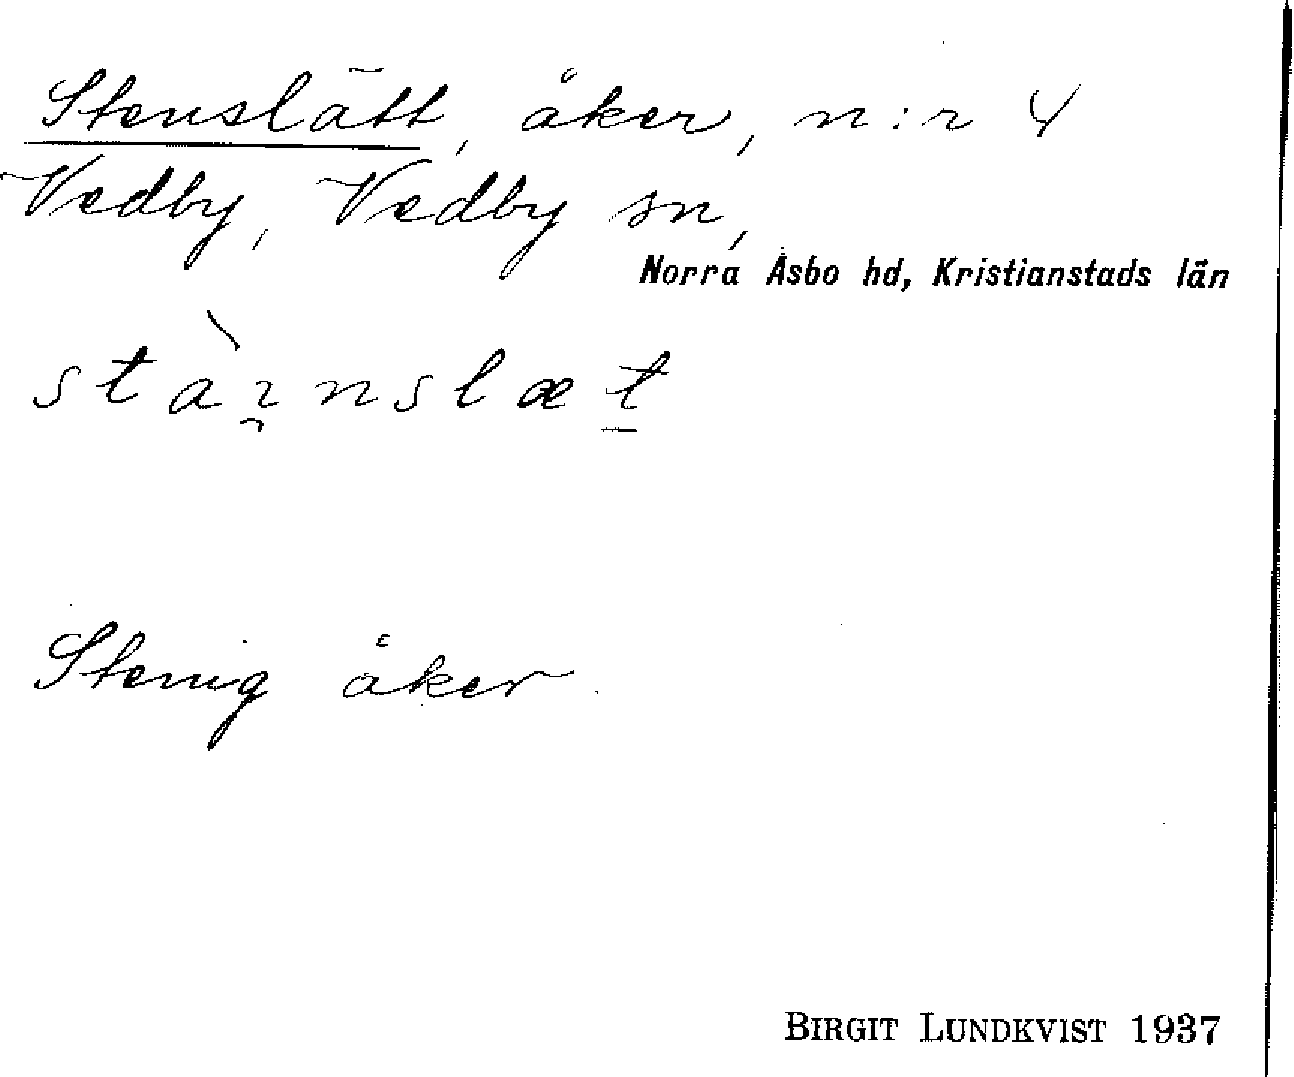 Stenslätt, åker, n:r 4
Vedby, Vedby sn,
Norra Åsbo hd, Kristianstads län
stàı̯nslæt̲
Stenig åker.
BIRGIT LUNDKVIST 1937